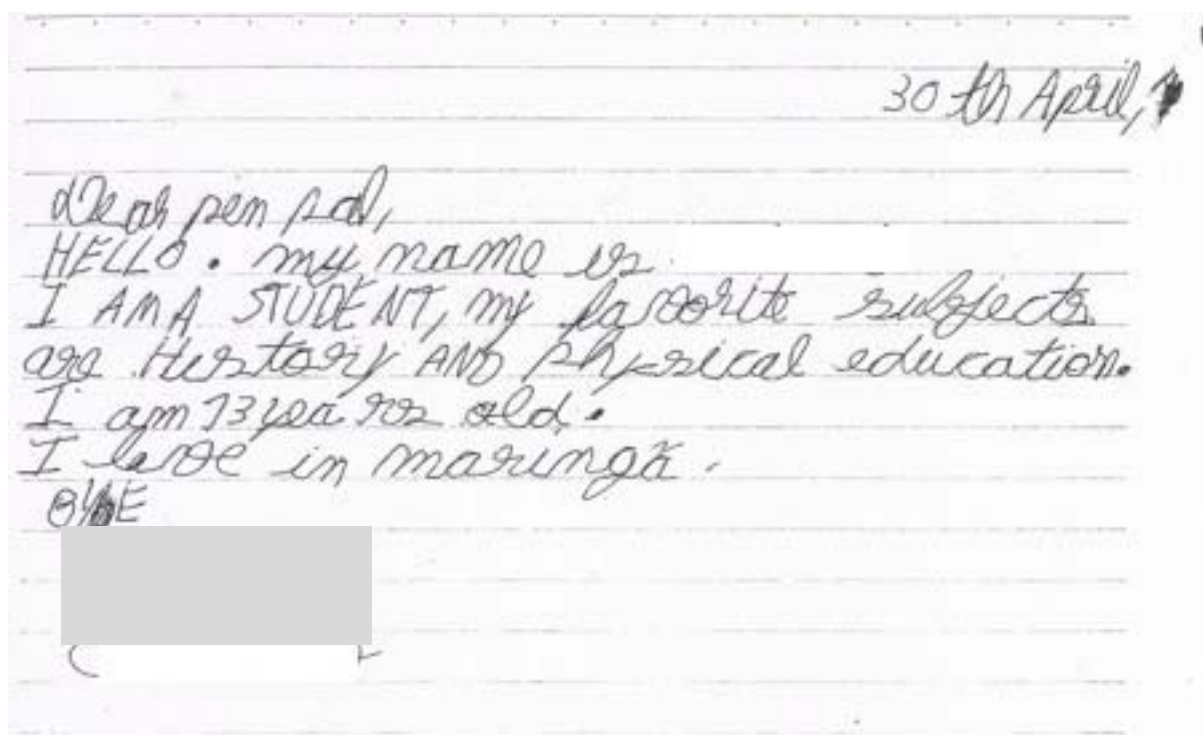 30th April,
Dear pen pal,
HELLO. my name is
I AM A STUDENT, my favorite subjects
are History AND Physical education.
I am 13 years old.
I live in maringá.
BYE